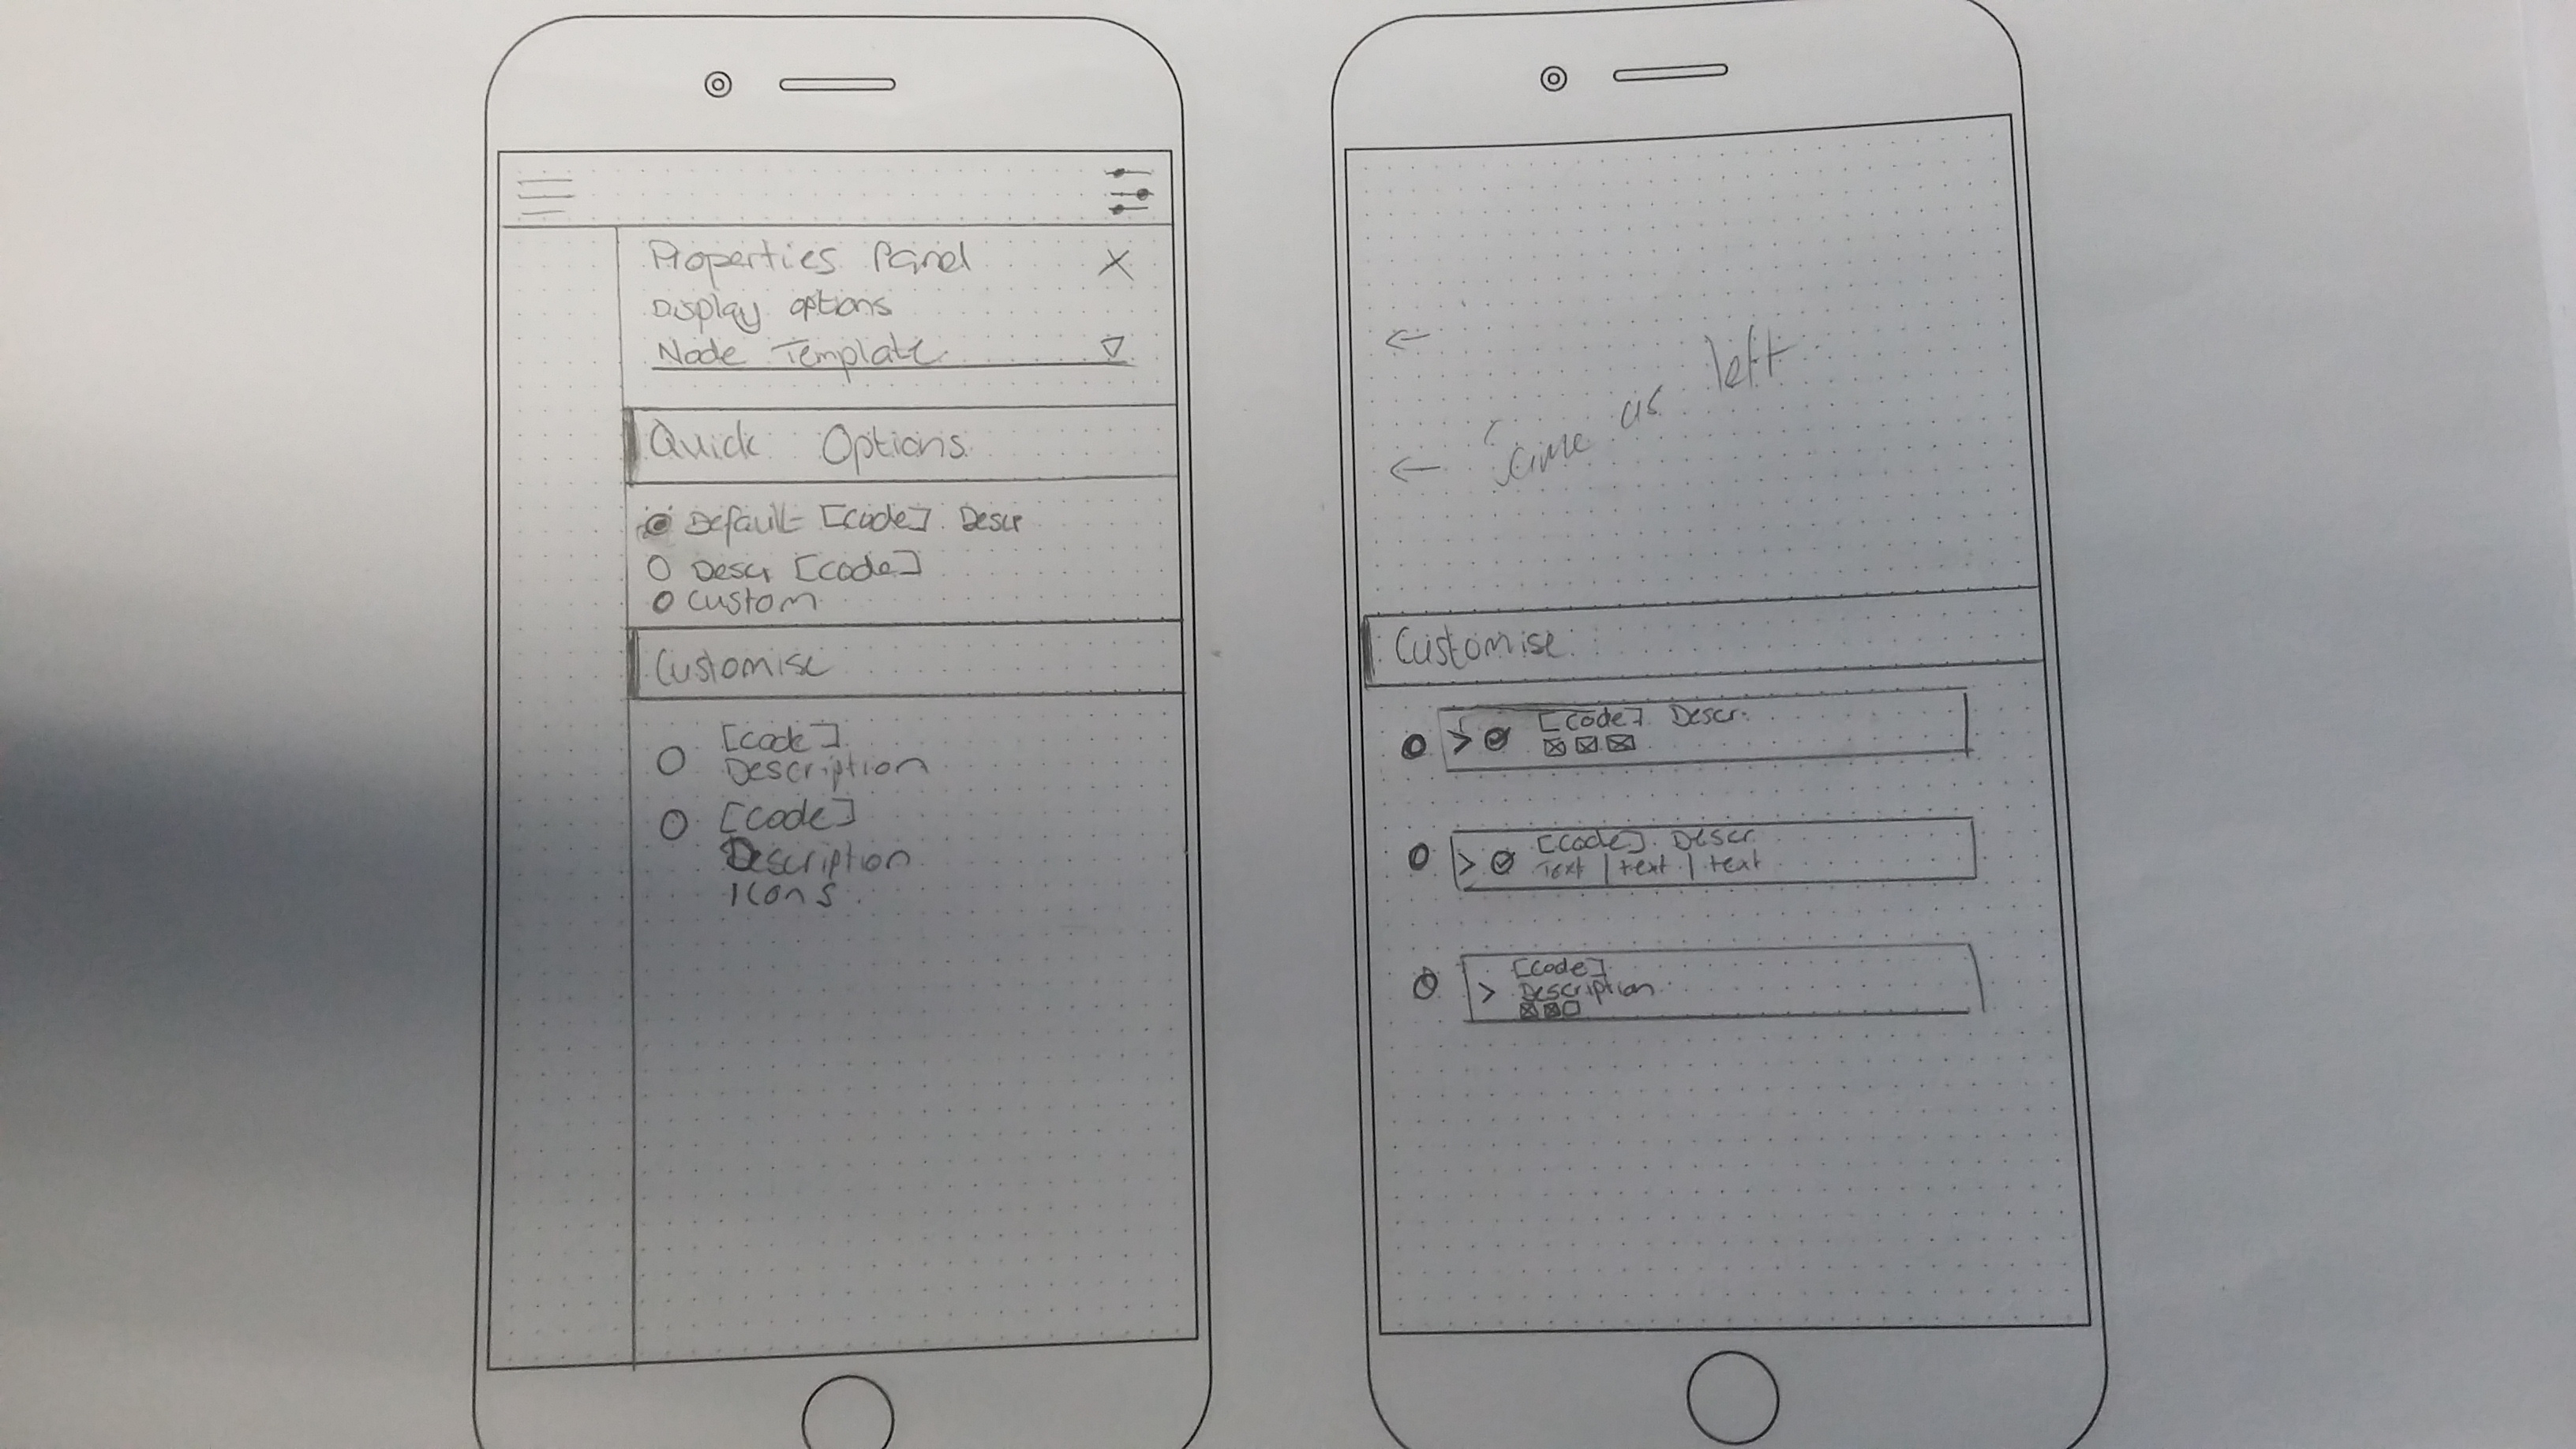 Properties Panel
Display options
Node Template
Quick Options
Default [code] Descr
Descr [code]
Custom
Customise
[code]
Description
[code]
Description
Icons
same as left
Customise
[code] Descr.
[code] Descr
Text | text | text
[code]
Description